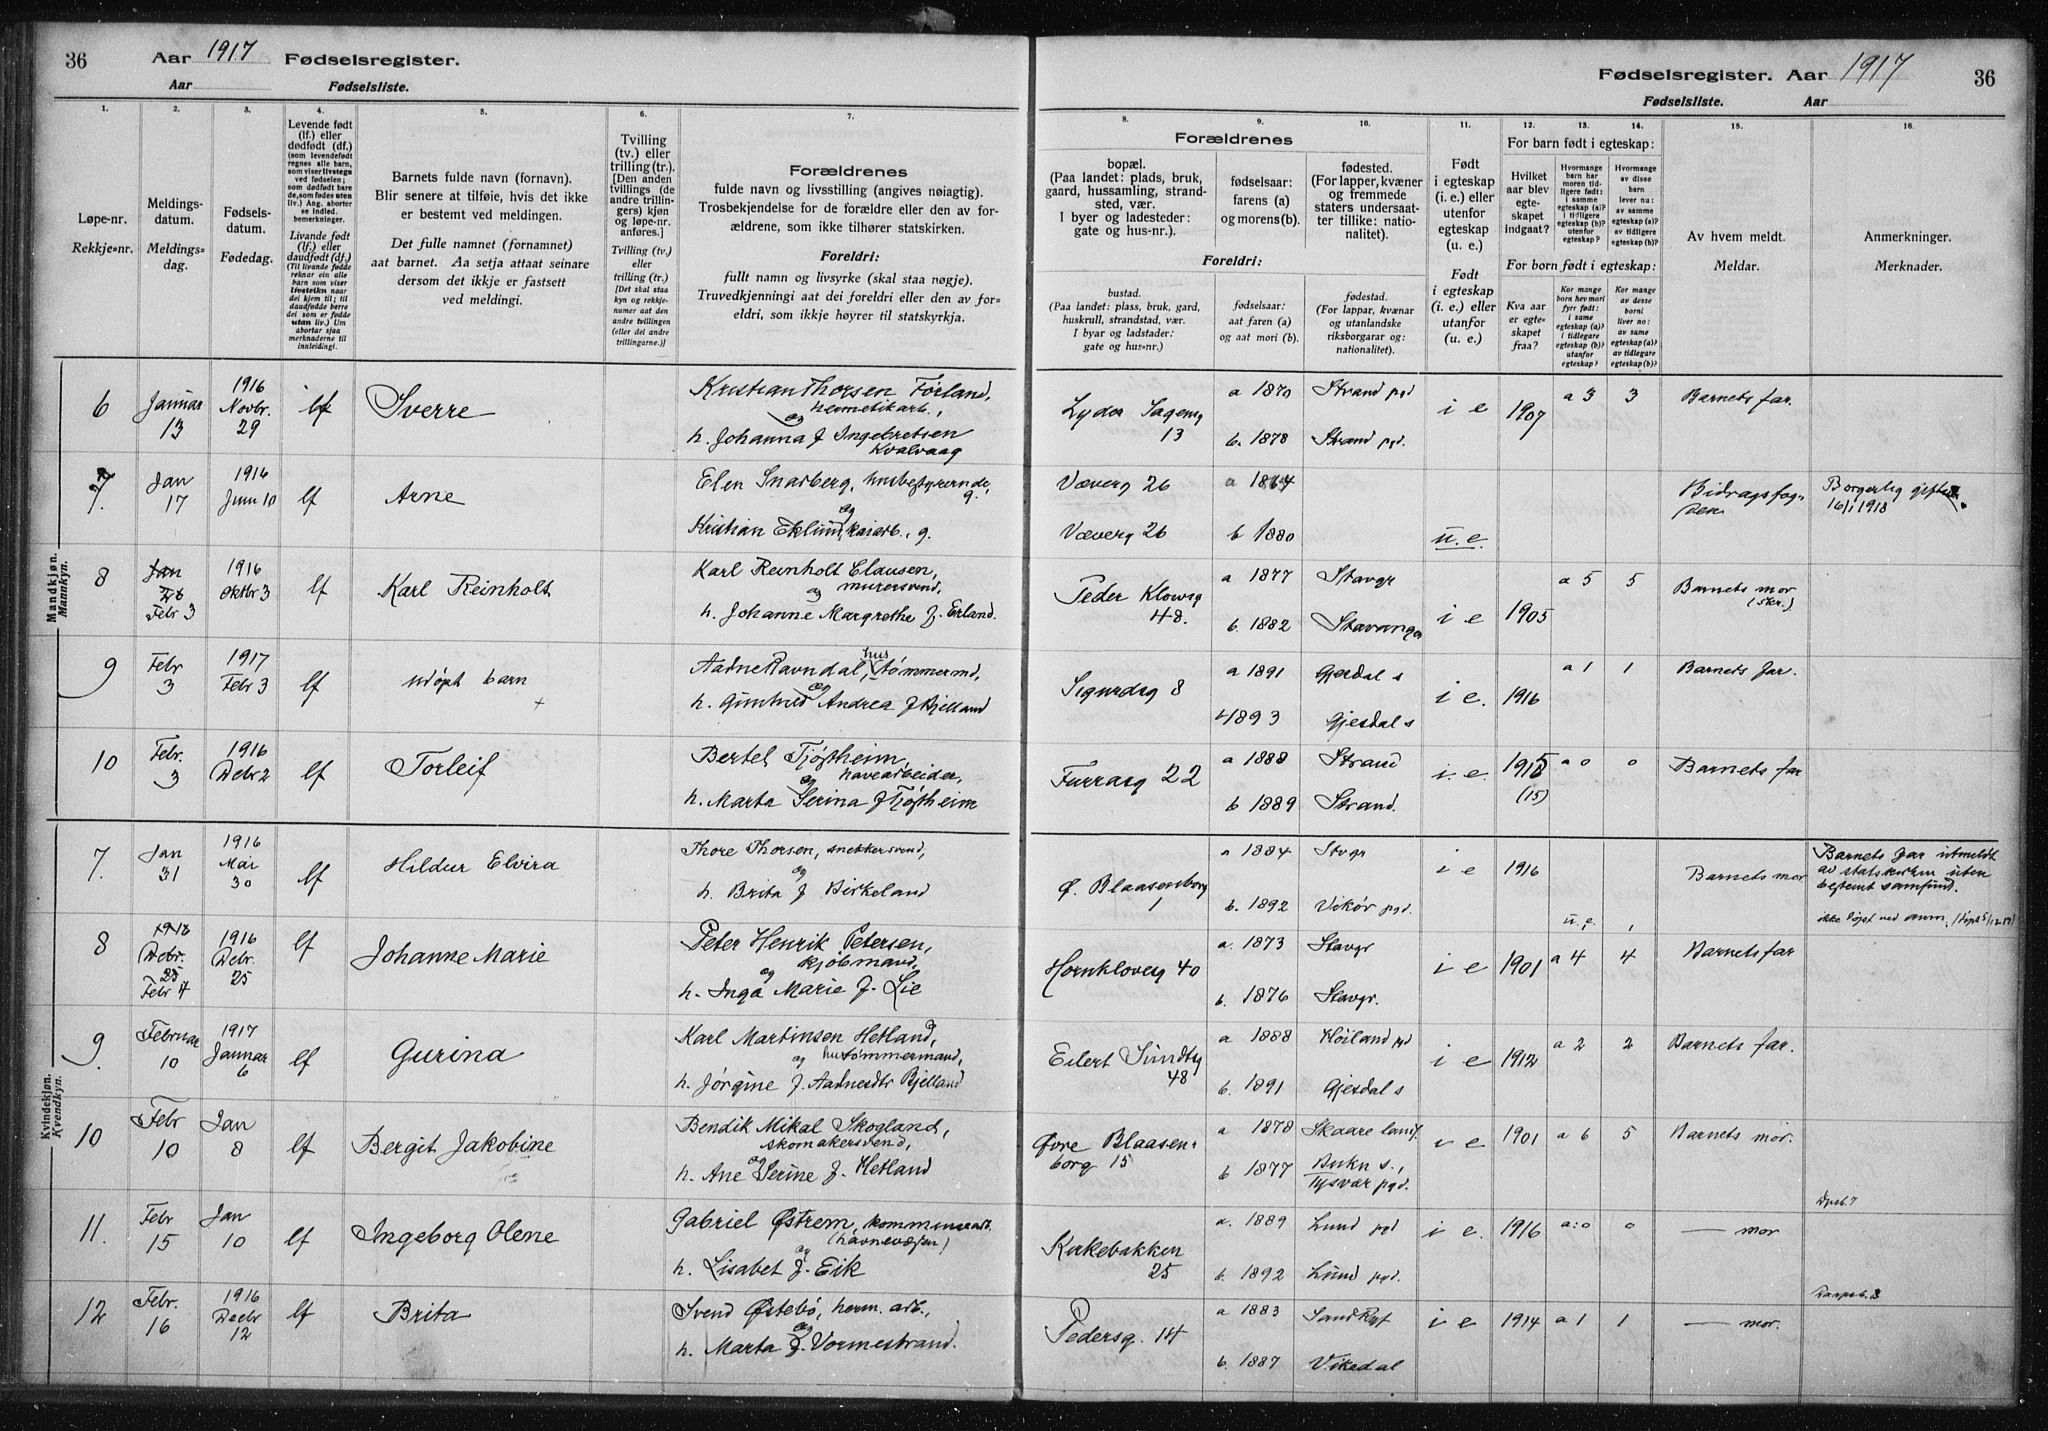 36
Aar 1917 Fødselsregister.
Aar Fødselsliste.
Fødselsregister. Aar 1917
36
Fødselsliste. Aar
1.
2.
3.
4.
5.
6.
7.
8.
9.
10.
11.
12.
13.
14.
15.
16.
Løpe-nr.
Rekkje-nr.
Meldings-
datum.
Meldings-
dag.
Fødsels-
datum.
Fødedag.
Levende født
(lf.) eller
dødfødt (df.)
(som levendefødt
regnes alle barn,
som viser livstegn
ved fødselen;
som dødfødt bare
de, som fødes uten
liv.) Ang. aborter
se indled.
bemerkninger.
Livande født
(lf.) eller
daudfødt (df.)
(Til livande fødde
reknar ein alle
barn som viser
livsteikn naar
dei kjem til; til
daudfødde berre
dei som er fødde
utan liv.) Um
abortar sjaa
merknaderne til
innleidingi.
Barnets fulde navn (fornavn).
Blir senere at tilføie, hvis det ikke
er bestemt ved meldingen.
Det fulle namnet (fornamnet)
aat barnet. Aa setja attaat seinare
dersom det ikkje er fastsett
ved meldingi.
Tvilling
(tv.) eller
trilling (tr.).
[Den anden
tvillings (de
andre trillin-
gers) kjøn
og løpe-nr.
anføres.]
Tvilling (tv.)
eller
trilling (tr.)
[Det skal staa
kyn og rekkje-
numer aat den
andre tvillingen
(eller dei andre
trillingarne.)]
Forældrenes
fulde navn og livsstilling (angives nøiagtig).
Trosbekjendelse for de forældre eller den av for-
ældrene, som ikke tilhører statskirken.
Foreldri:
fullt namn og livsyrke (skal staa nøgje).
Truvedkjenningi aat dei foreldri eller den av for-
eldri, som ikkje høyrer til statskyrkja.
Forældrenes
bopæl.
(Paa landet: plads, bruk,
gaard, hussamling, strand-
sted, vær.
I byer og ladesteder:
gate og hus-nr.).
fødselsaar:
farens (a)
og morens (b).
fødested.
(For lapper, kvæner
og fremmede
staters undersaat-
ter tillike: natio-
nalitet).
Foreldri:
bustad.
(Paa landet: plass, bruk, gard,
huskrull, strandstad, vær.
I byar og ladstader:
gate og hus-nr.)
fødselsaar:
aat faren (a)
og aat mori (b).
fødestad.
(For lappar, kvænar
og utanlandske
riksborgarar og:
nationalitet).
Født
i egteskap
(i. e.) eller
utenfor
egteskap
(u. e.)
Født
i egteskap
(i. e.) eller
utanfor
(u. e.)
For barn født i egteskap:
Hvilket
aar blev
egte-
skapet
indgaat?
Hvormange
barn har
moren tid-
ligere født:
i samme
egteskap (a)?
i tidligere
egteskap (b)?
utenfor
egteskap ?
Hvormange
av disse
barn
lever nu:
av samme
egteskap (a)?
av tidligere
egteskap (b)?
For born født i egteskap:
Kva aar
er egte-
skapet
fraa?
Kor mange
born hev mori
fyrr født:
i same
egteskap (a)?
i tidlegare
egteskap (b)?
utanfor
egteskap?
Kor mange
av desse
borni
liver no:
av same
egteskap (a)?
av tidlegare
egteskap (b)?
Av hvem meldt.
Meldar.
Anmerkninger.
Merknader.
Mandkjøn.
Mannkyn.
6 Januar 13 1916 Novbr. 29 lf Sverre Kristian Thorsen Førland, hermetikarb., og h. Johanna f Ingebretsen Kvalvaag Lyder Sagensg 13 a 1870 Strand pgd b. 1878 Strand pgd. i e 1907 a 3 3 Barnets far.
7. Jan 17 1916 Juni 10 lf Arne Elen Snarberg, husbestyrerinde, g. og Kristian Eklund, kaiarb., g. Væverg 26 a 1864 Væverg 26 b 1880 u. e. Bidragsfogden Borgerlig gifte 16/1 1918
8 Jan Febr 3 1916 Oktbr 3 lf Karl Reinholt Karl Reinholt Clausen, murersvend, og h. Johanne Margrethe f. Erland. Peder Klowsg 48. a 1877 Stavgr b. 1882 Stavanger i e 1905 a 5 5 Barnets mor (skr.)
9 Febr 3 1917 Febr 3 lf udøpt barn + Aadne Ravndal, hustømmermd, og h. Gunhild Andrea f Bjelland Sigurdsg 8 a 1891 Gjesdal s 1893 Gjesdal s i e. 1916 a 1 1 Barnets far.
10 Febr. 3 1916 Debr 2 lf Torleif Bertel Tjøstheim, havearbeider, og h. Marta Serina f Tjøstheim Furrasg 22 a 1888 Strand b 1889 Strand. i. e. 1915 (15) a 0 0 Barnets far
Kvindekjøn.
Kvendkyn.
7. Jan 31 1916 Mai 30 lf Hildur Elvira Thore Thorsen, snekkersvend, og h. Brita f Birkeland Ø. Blaasenborg 1 a 1884 Stvgr b. 1892 Vikør pgd. i e 1916 u. e. 1 Barnets mor Barnets far utmeldt av statskirken uten bestemt samfund.
ikke døpt ved anm.
8 1916 Debr. 25 Febr 7 1916 Debr. 25 lf Johanne Marie Peter Henrik Petersen, kjøbmand, og h. Inga Marie f. Lie Hornkloverg 40 a. 1873 Stavgr b. 1876 Stavgr. i e 1901 a 4 4 Barnets far
9. Februar 10 1917 Januar 6 lf Gurina Karl Martinsen Hetland, hustømmermand, og h. Jørgine f. Aadnesdtr Bjelland Eilert Sundtsg 48 a 1888 Høiland pgd b. 1891 Gjesdal s i e 1912 a 2 2 Barnets far.
10 Febr 10 Jan 8 lf Bergit Jakobine Bendik Mikal Skogland, skomakersvend, og h. Ane Serine f. Hetland Øvre Blaasenborg 15 a 1878 Skaare lands. b 1877 Bukn s., Tysvær pgd. i e 1901 a 6 5 Barnets mor.
11. Febr 15 Jan 10 lf Ingeborg Olene Gabriel Østrem, kommunearb. (havnevæsen) og h. Lisabet f. Eik Kirkebakken 25 a. 1889 Lund pgd b. 1892 Lund pgd. i e. 1916 a: 0 0 — mor
12 Febr. 16 1916 Decbr 12 lf Brita Svend Østebø, herm. arb., og h. Marta f. Vormestrand. Pedersg. 14 a 1883 Sand Ryf b. 1887 Vikedal i e 1914 a 1 1 — mor.